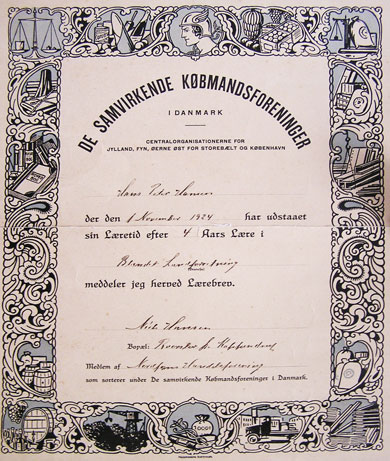 DE SAMVIRKENDE KØBMANDSFORENINGER
I DANMARK
CENTRALORGANISATIONERNE FOR
JYLLAND, FYN, ØERNE ØST FOR STOREBÆLT OG KØBENHAVN
Hans Peter Hansen
der den 1 November 1924 har udstaaet
sin Læretid efter 4 Aars Lære i
Blandet Landforretning
meddeler jeg herved Lærebrev.
Niels Hansen
Bopæl:
Medlem af Nordfyns Handelsforening
som sorterer under De samvirkende Købmandsforeninger i Danmark.